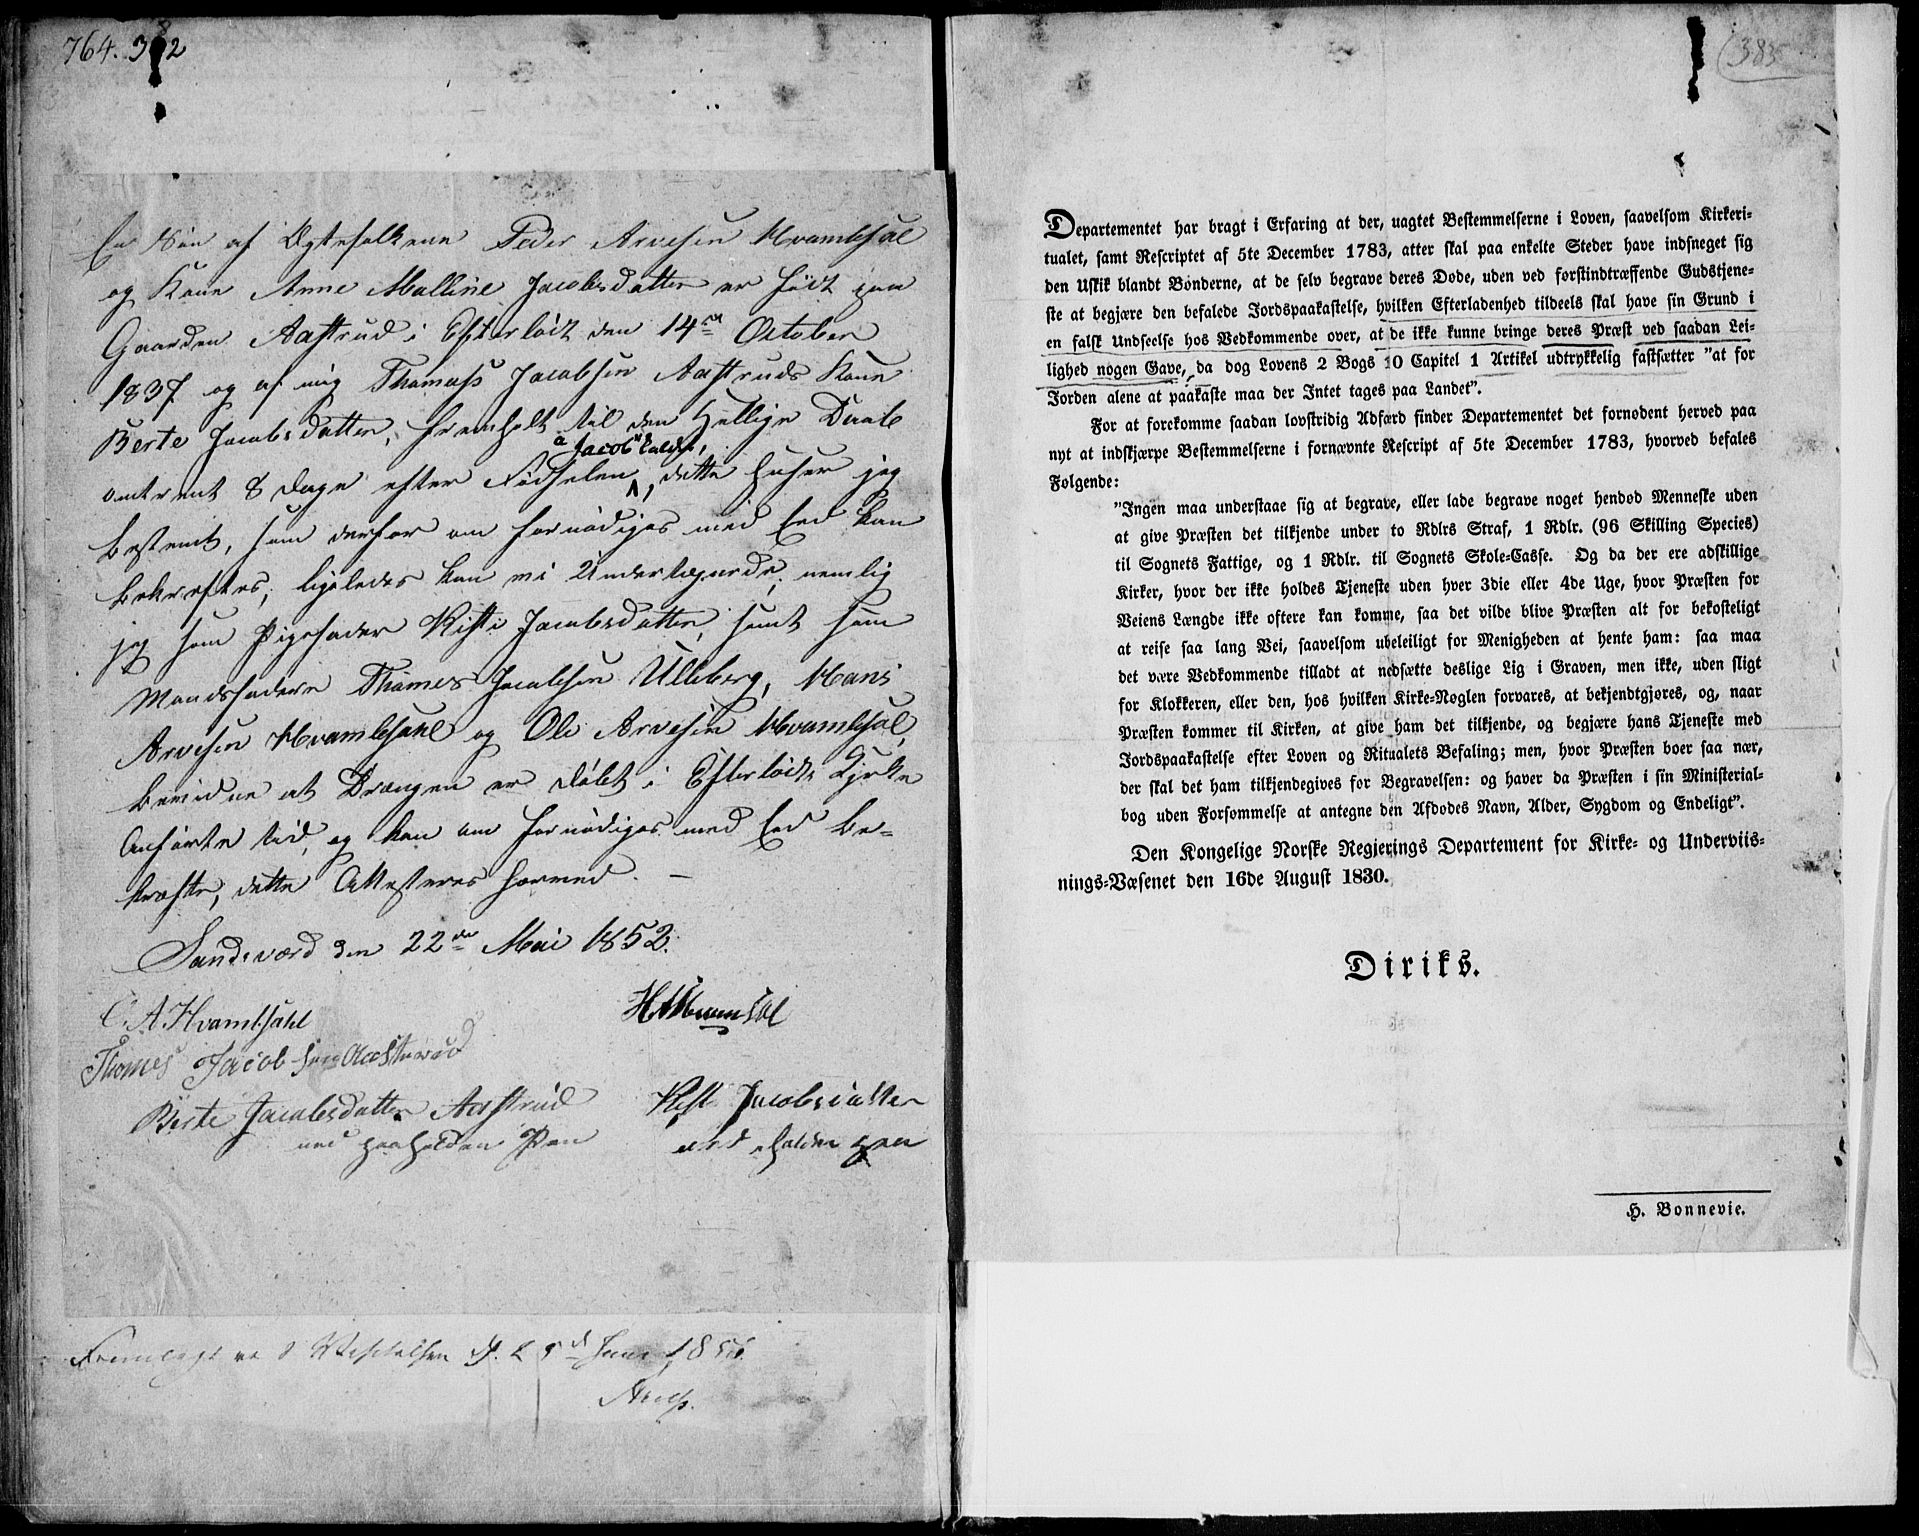 764. 382
En Søn af Ægtefolkene Peder Arvesen Hvambsal
og Kone Anne Malline Jacobsdatter er født paa
Gaarden Aastrud i Efterlødt den 14de October
1837 og af mig Thomas Jacobsen Aastruds Kone
Berte Jacobsdatter, fremholt til den Hellige Daab
a Jacob kaldt,
omtrent 8 dage efter Fødselen, dette husker jeg
bestemt, som derfor om fornødiges med Eed kan
bekreftes, ligeledes kan vi Undertegnede, nemlig
jeg som Pigefader Kisti Jacobsdatter, samt som
Mandsfadere Thomes Jacobsen Ulleberg, Hans
Arvesen Hvambsahl og Ole Arvesen Hvambsal,
bevidne at Drængen er døbt i Efterlødts Kjrke
Anførte tid, og kan om fornødiges med Eed be-
kræfte, dette Attesteres herved. —
Sandsværd den 22de Mai 1852.
O. A. Hvambsahl
H A Hvamsal
Thomes Jacobsen Aasterud
Berte Jacobsdatter Aastrud
med paaholden Pen
Kisti Jacobsdatter
med holden pen
Fremlagt ved
Juni
(385
Departementet har bragt i Erfaring at der, uagtet Bestemmelserne i Loven, saavelsom Kirkeri-
tualet, samt Rescriptet af 5te December 1783, atter skal paa enkelte Steder have indsneget sig
den Uskik blandt Bønderne, at de selv begrave deres Døde, uden ved forstindtræffende Gudstjene-
ste at begjære den befalede Jordspaakastelse, hvilken Efterladenhed tildeels skal have sin Grund i
en falsk Undseelse hos Vedkommende over, at de ikke kunne bringe deres Præst ved saadan Lei-
lighed nogen Gave, da dog Lovens 2 Bogs 10 Capitel 1 Artikel udtrykkelig fastsætter "at for
Jorden alene at paakaste maa der Intet tages paa Landet".
For at forekomme saadan lovstridig Adfærd finder Departementet det fornødent herved paa
nyt at indskjærpe Bestemmelserne i fornævnte Rescript af 5te December 1783, hvorved befales
Følgende:
"Ingen maa understaae sig at begrave, eller lade begrave noget hendød Menneske uden
at give Præsten det tilkjende under to Rdlrs Straf, 1 Rdlr. (96 Skilling Species)
til Sognets Fattige, og 1 Rdlr. til Sognets Skole-Casse. Og da der ere adskillige
Kirker, hvor der ikke holdes Tjeneste uden hver 3die eller 4de Uge, hvor Præsten for
Veiens Længde ikke oftere kan komme, saa det vilde blive Præsten alt for bekosteligt
at reise saa lang Vei, saavelsom ubeleiligt for Menigheden at hente ham: saa maa
det være Vedkommende tilladt at nedsætte deslige Lig i Graven, men ikke, uden sligt
for Klokkeren, eller den, hos hvilken Kirke-Nøglen forvares, at bekjendtgjøres, og, naar
Præsten kommer til Kirken, at give ham det tilkjende, og begjære hans Tjeneste med
Jordspaakastelse efter Loven og Ritualets Befaling; men, hvor Præsten boer saa nær,
der skal det ham tilkjendegives før Begravelsen: og haver da Præsten i sin Ministerial-
bog uden Forsømmelse at antegne den Afdødes Navn, Alder, Sygdom og Endeligt".
Den Kongelige Norske Regjerings Departement for Kirke- og Underviis-
nings-Væsenet den 16de August 1830.
Diriks.
H. Bonnevie.